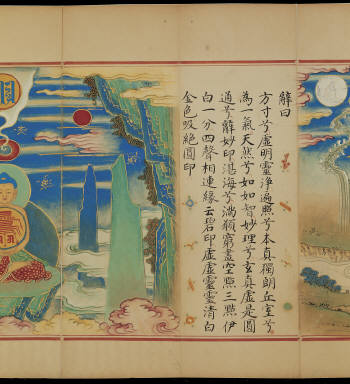 辭曰
方寸兮虛明靈淨遍照兮本真獨朗丘室兮
為一氣天然兮如如智妙理兮玄真虛是圓
通兮辭妙印海兮窮盡空照三點伊
白一分四聲相連緣云碧印虛虛靈靈清白
金色吸絕圓印